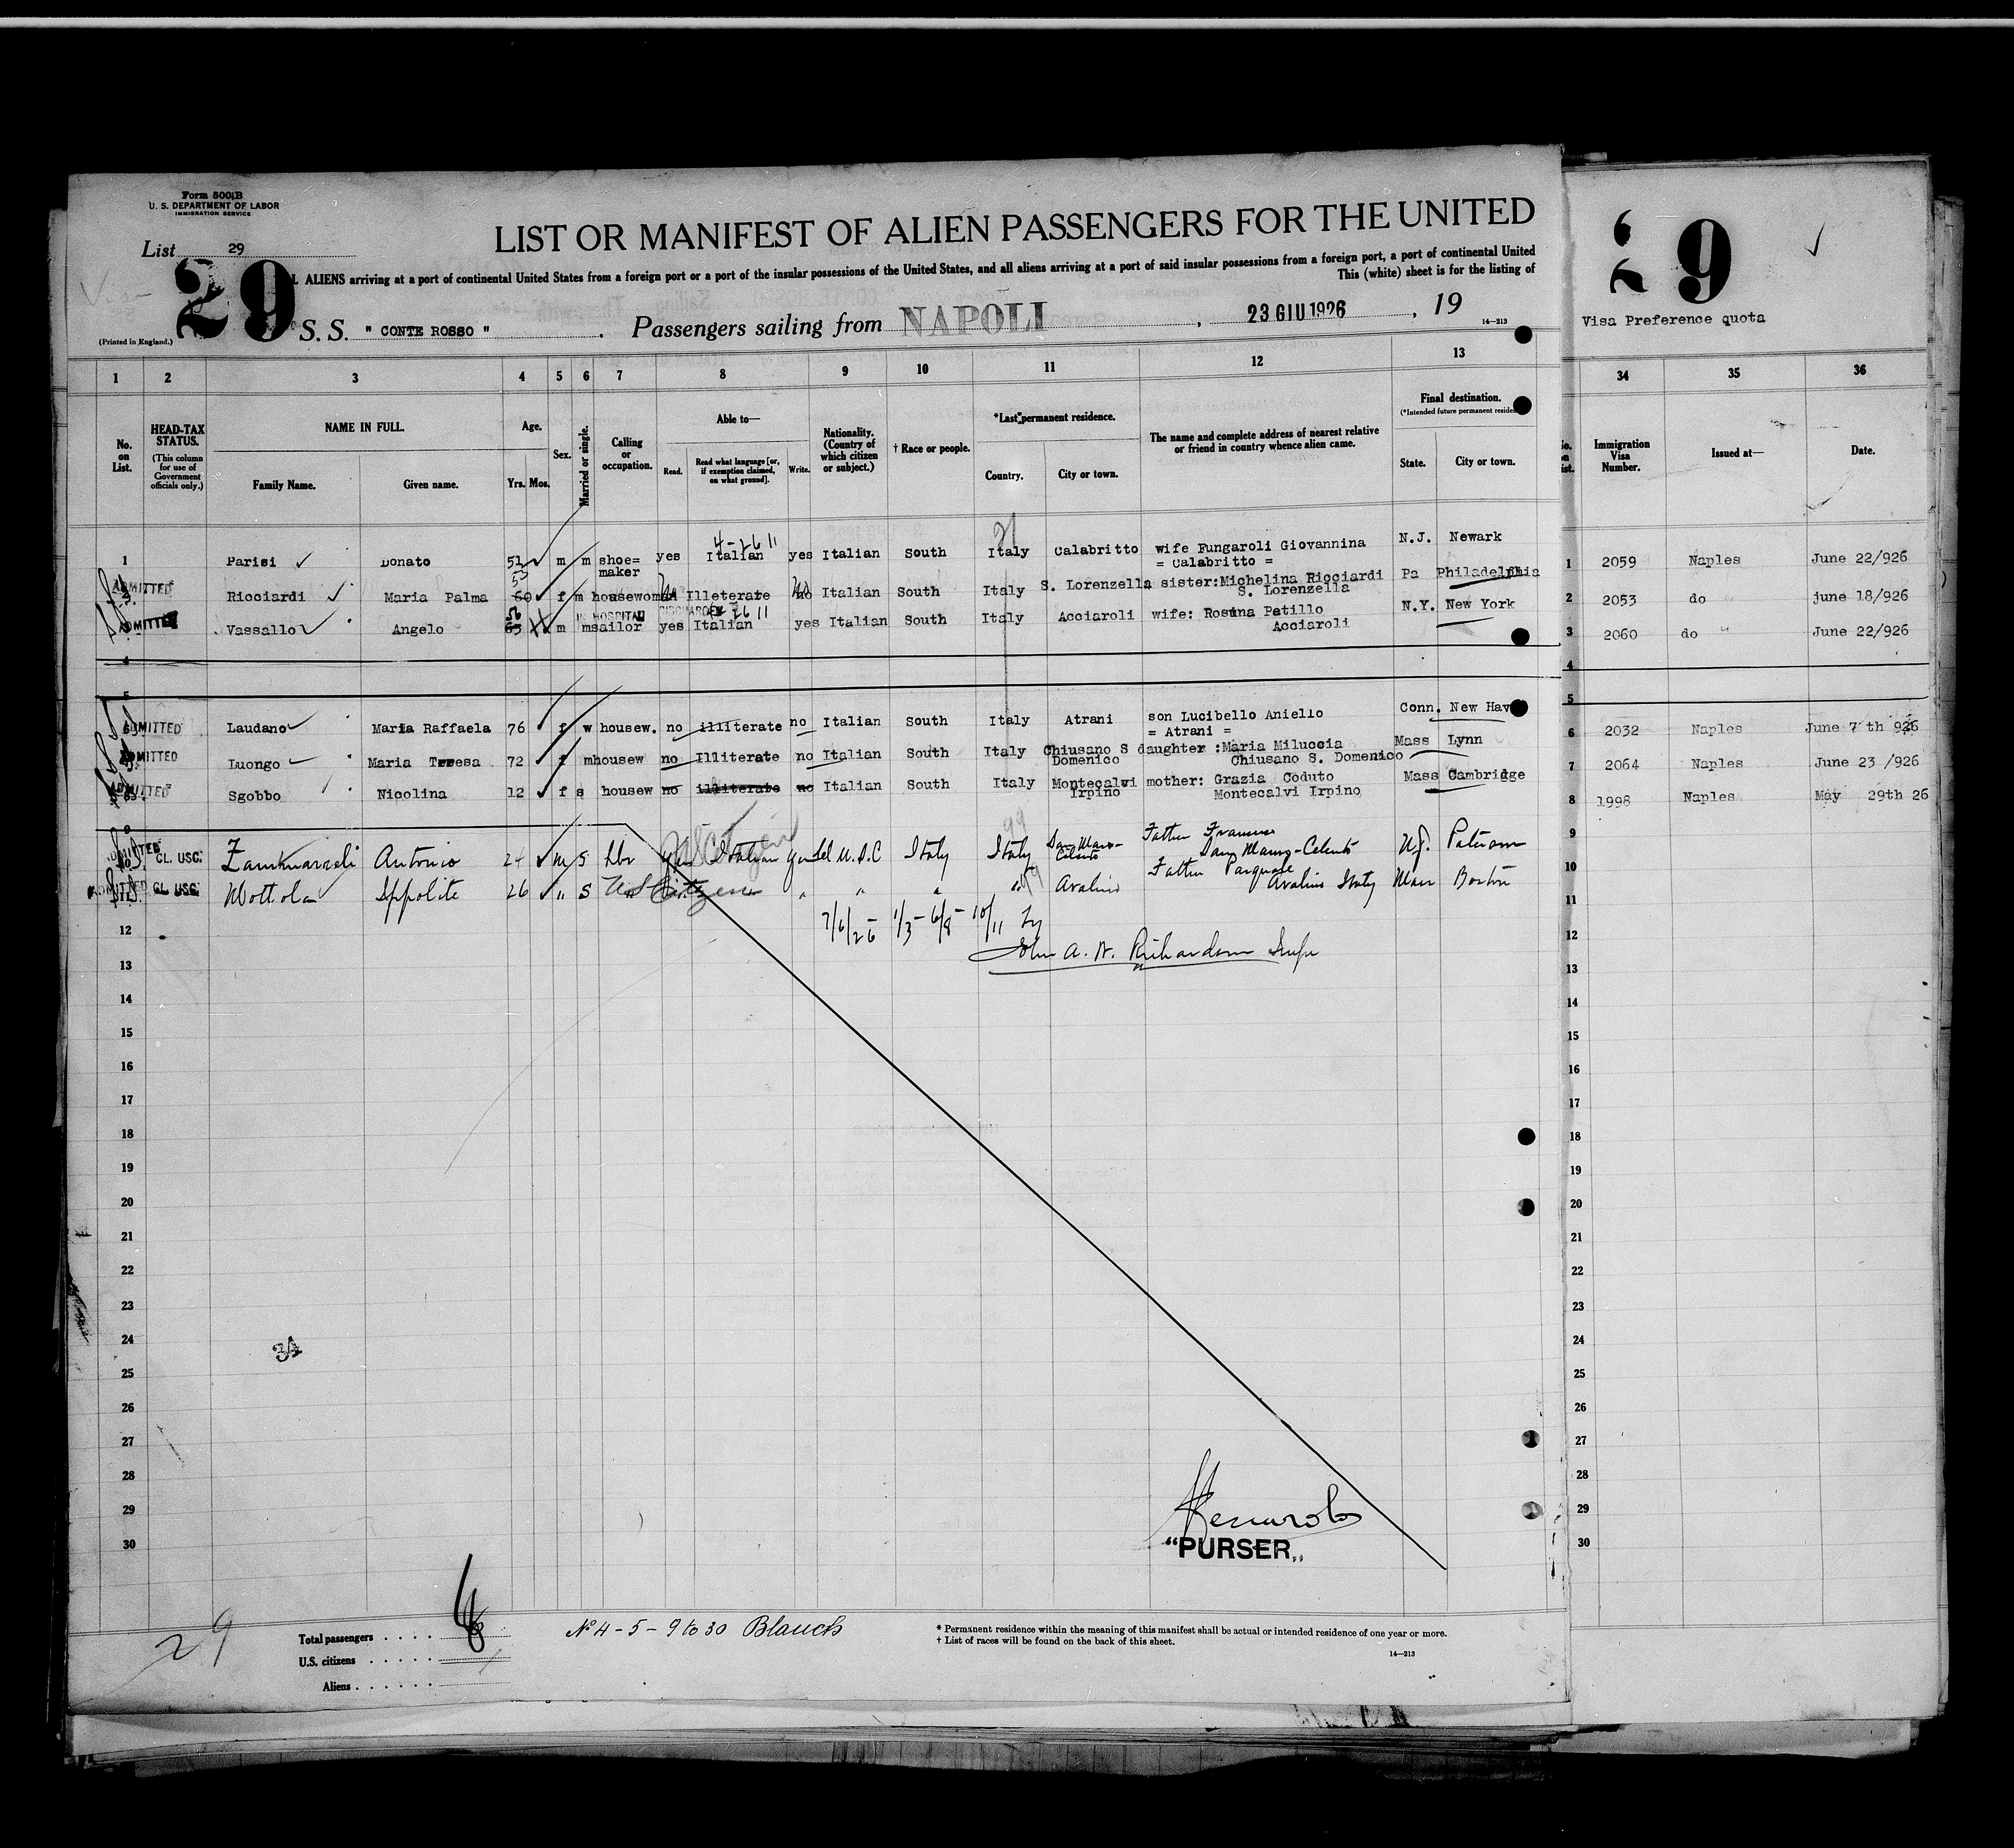 Form 500B
U. S. DEPARTMENT OF LABOR
IMMIGRATION SERVICE
List 29
29
LIST OR MANIFEST OF ALIEN PASSENGERS FOR THE UNITED
ALIENS arriving at a port of continental United States from a foreign port or a port of the insular possessions of the United States, and all aliens arriving at a port of said insular possessions from a foreign port, a port of continental United
This (white) sheet is for the listing of
(Printed in England.)
S. S. " CONTE ROSSO " . Passengers sailing from NAPOLI , 23 GIU 1926 , 19
14—213
29
Visa Preference quota
1 2 3 4 5 6 7 8 9 10 11 12 13 34 35 36
No. on List.
HEAD-TAX STATUS.
(This column for use of Government officials only.)
NAME IN FULL.
Family Name. Given name.
Age.
Yrs. Mos.
Sex.
Married or single.
Calling or occupation.
Able to—
Read. Read what language [or, if exemption claimed, on what ground]. Write.
Nationality. (Country of which citizen or subject.)
† Race or people.
*Last permanent residence.
Country. City or town.
The name and complete address of nearest relative or friend in country whence alien came.
Final destination.
State. City or town.
Immigration Visa Number.
Issued at—
Date.
1 Parisi Donato 51 m m shoe= maker yes Italian yes Italian South Italy Calabritto wife Fungaroli Giovannina = Calabritto = N.J. Newark 1 2059 Naples June 22/926
ADMITTED Ricciardi Maria Palma 60 f m housewoman Illeterate no Italian South Italy S. Lorenzella sister:Michelina Ricciardi S. Lorenzella Pa Philadelphia 2 2053 do june 18/926
IN HOSPITAL
ADMITTED Vassallo Angelo m m sailor yes Italian yes Italian South Italy Acciaroli wife: Rosina Patillo Acciaroli N.Y. New York 3 2060 do " June 22/926
4 4
5 5
ADMITTED Laudano Maria Raffaela 76 f w housew. no illiterate no Italian South Italy Atrani son Lucibello Aniello = Atrani = Conn. New Hav 6 2032 Naples June 7 th 926
ADMITTED Luongo Maria Teresa 72 f m housew no Illiterate no Italian South Italy Chiusano S Domenico daughter :Maria Miluccia Chiusano S. Domenico Mass Lynn 7 2064 Naples June 23 /926
ADMITTED Sgobbo Nicolina 12 f s housew no illiterate no Italian South Italy Montecalvi Irpino mother: Grazia Coduto Montecalvi Irpino Mass Cambridge 8 1998 Naples May 29th 26
9 9
ADMITTED CL. USC. Antonio 24 m S Lbr yes Italian U.S.C Italy Italy San Mauro-Cilento Father San Mauro-Celento N.J. Paterson 10
ADMITTED CL USC. Mottola Ippolito 26 " S US Citizen " " " " Avalino Father Pasquale Avalino Italy Mass Boston 11
12 7/6/26 1/3 - 6/8 - 10/11 by 12
John A. W. Richardson Insp
13 13
14 14
15 15
16 16
17 17
18 18
19 19
20 20
21 21
22 22
23 23
24 24
34
25 25
26 26
27 27
28 28
29 29
30 30
"PURSER"
29
Total passengers . . . .
U.S. citizens . . . . .
Aliens . . . . . .
No 4 - 5 - 9 to 30 Blanch
* Permanent residence within the meaning of this manifest shall be actual or intended residence of one year or more.
† List of races will be found on the back of this sheet.
14—213